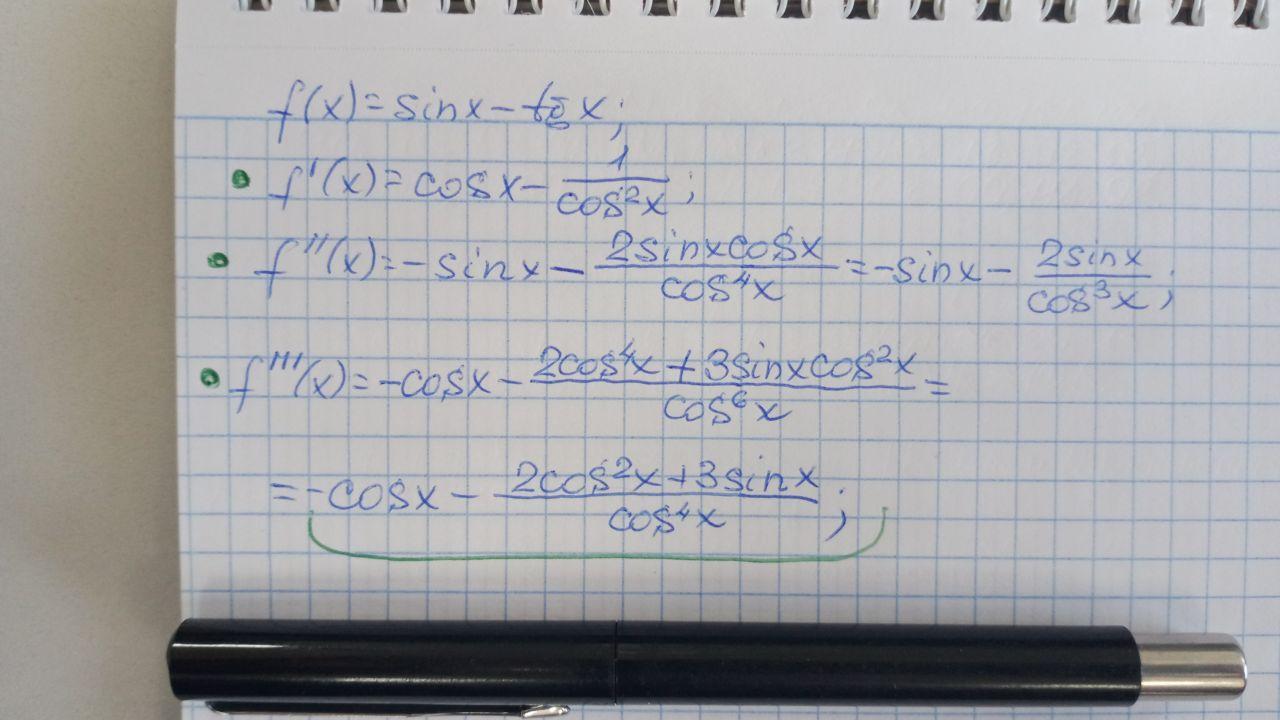 f(x)=sinx-tg x;
• f'(x)=cosx-\frac{1}{cos²x};
• f''(x)=-sinx-\frac{2sinxcosx}{cos⁴x}=-sinx-\frac{2sinx}{cos³x};
• f'''(x)=-cosx-\frac{2cos⁴x+3sinxcos²x}{cos⁶x}=
=-cosx-\frac{2cos²x+3sinx}{cos⁴x};